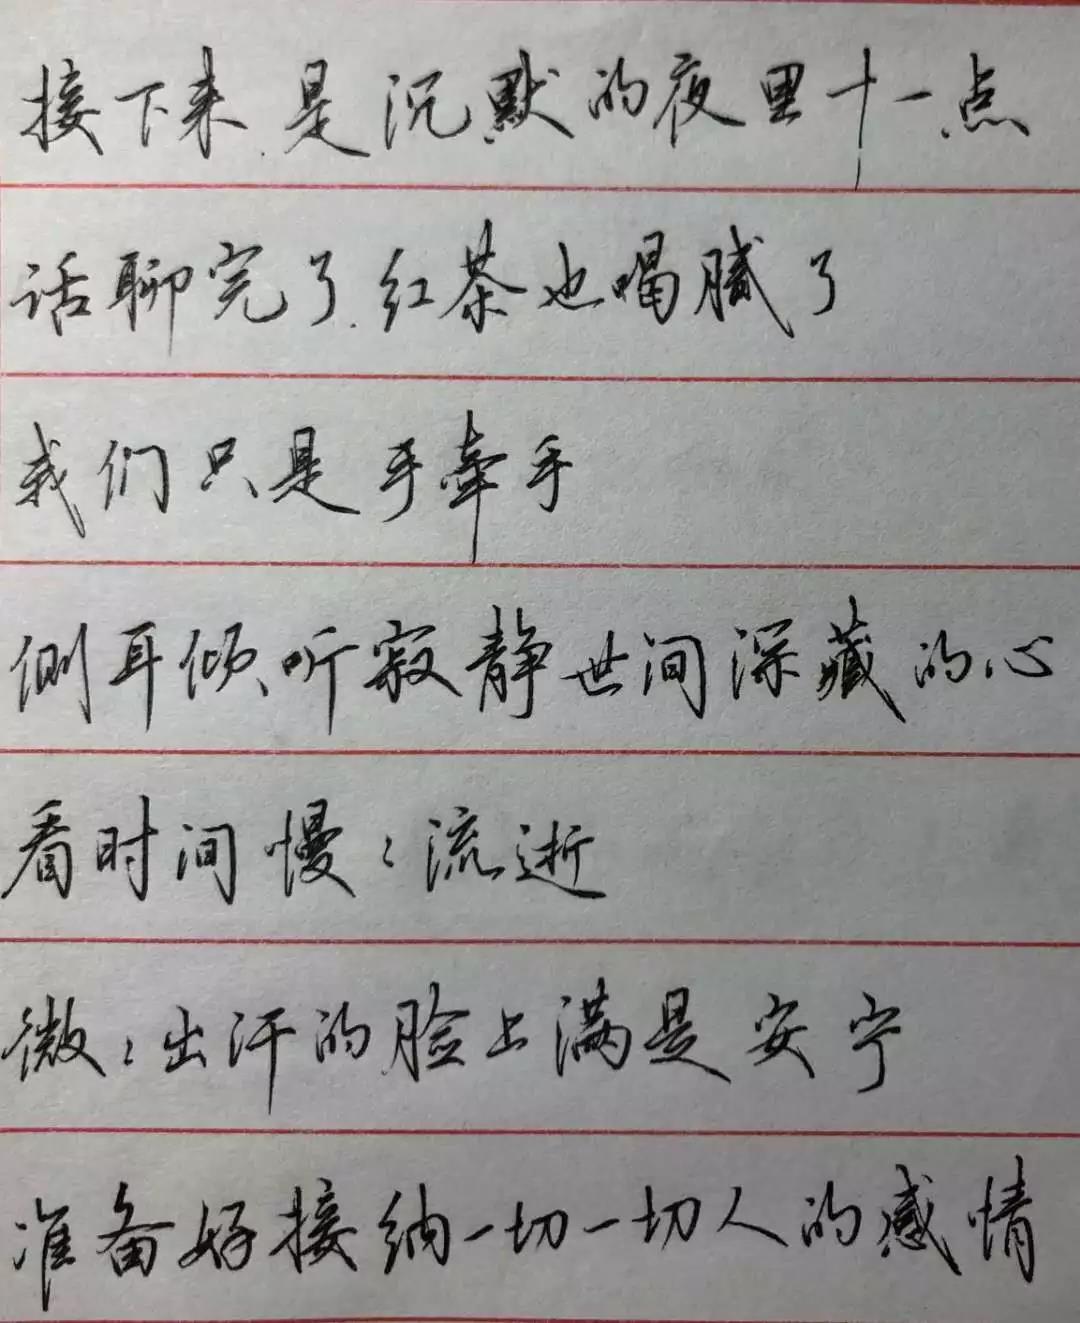 接下来.是沉默的夜里十一点
话聊完了.红茶也喝腻了
我们只是手牵手
侧耳倾听寂静世间深藏的心
看时间慢:流逝
微:出汗的脸上满是安宁
准备好接纳一切一切人的感情